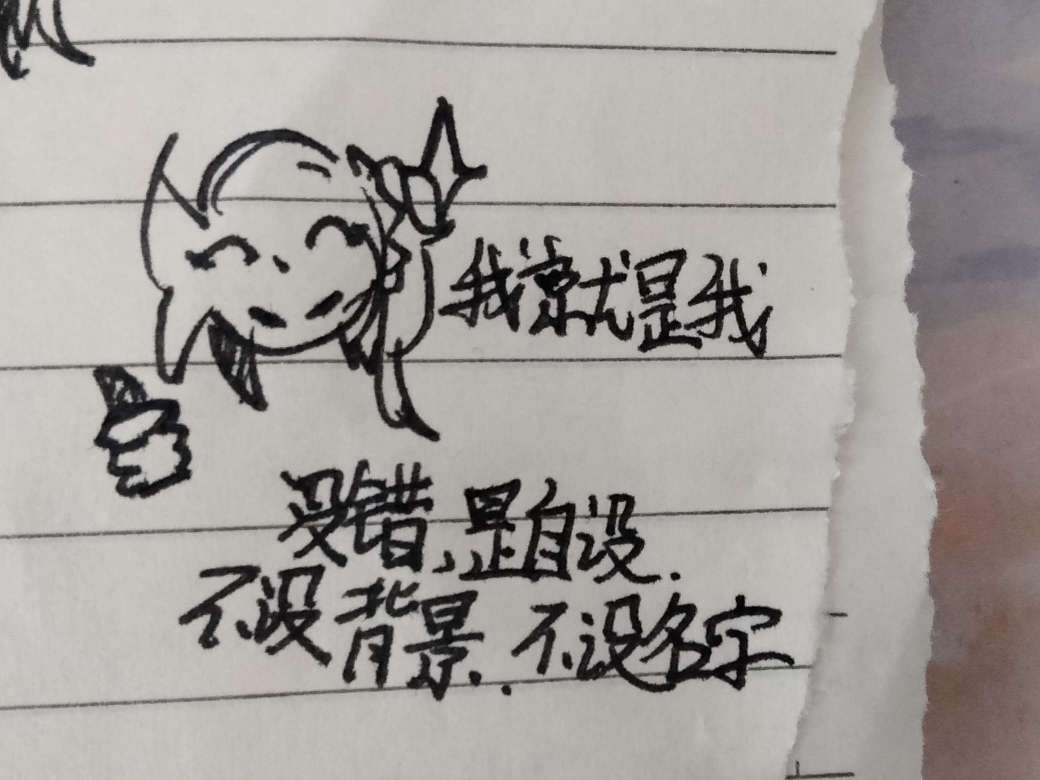 我就是我
没错，是自设.
不设背景. 不设名字